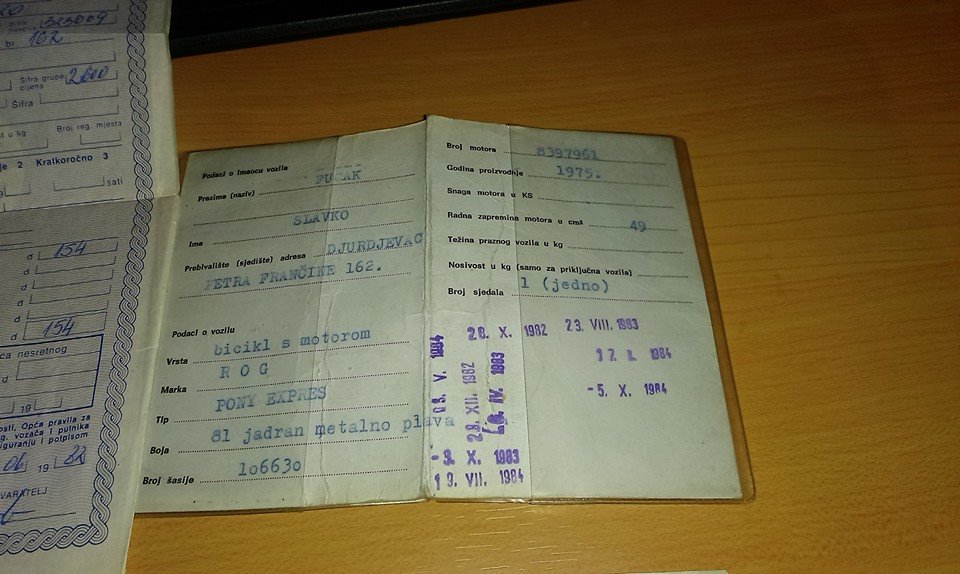 323009
br. 162
Šifra grupe
cijena
2600
Šifra
t u kg
Broj reg. mjesta
je 2 Kratkoročno 3
sati
d 154
d
d
d
d
d 154
nesretnog
d
19
Opća pravila za
vozača i putnika
i potpisom
19 82
Podaci o imaocu vozila
Prezime (naziv)
SLAVKO
Ime
Prebivalište (sjedište) adresa DJURDJEVAC
PETRA FRANČINE 162.
Podaci o vozilu
Vrsta bicikl s motorom
Marka R O G
Tip PONY EXPRES
Boja 81 jadran metalno plava
Broj šasije 106630
Broj motora 8397961
Godina proizvodnje 1975.
Snaga motora u KS
Radna zapremina motora u cm³ 49
Težina praznog vozila u kg
Nosivost u kg (samo za priključna vozila)
Broj sjedala 1 (jedno)
20. X. 1982
23. VIII. 1983
17. II. 1984
-5. X. 1984
V. 1984
28. XII. 1982
IV. 1983
-3. X. 1983
19. VII. 1984